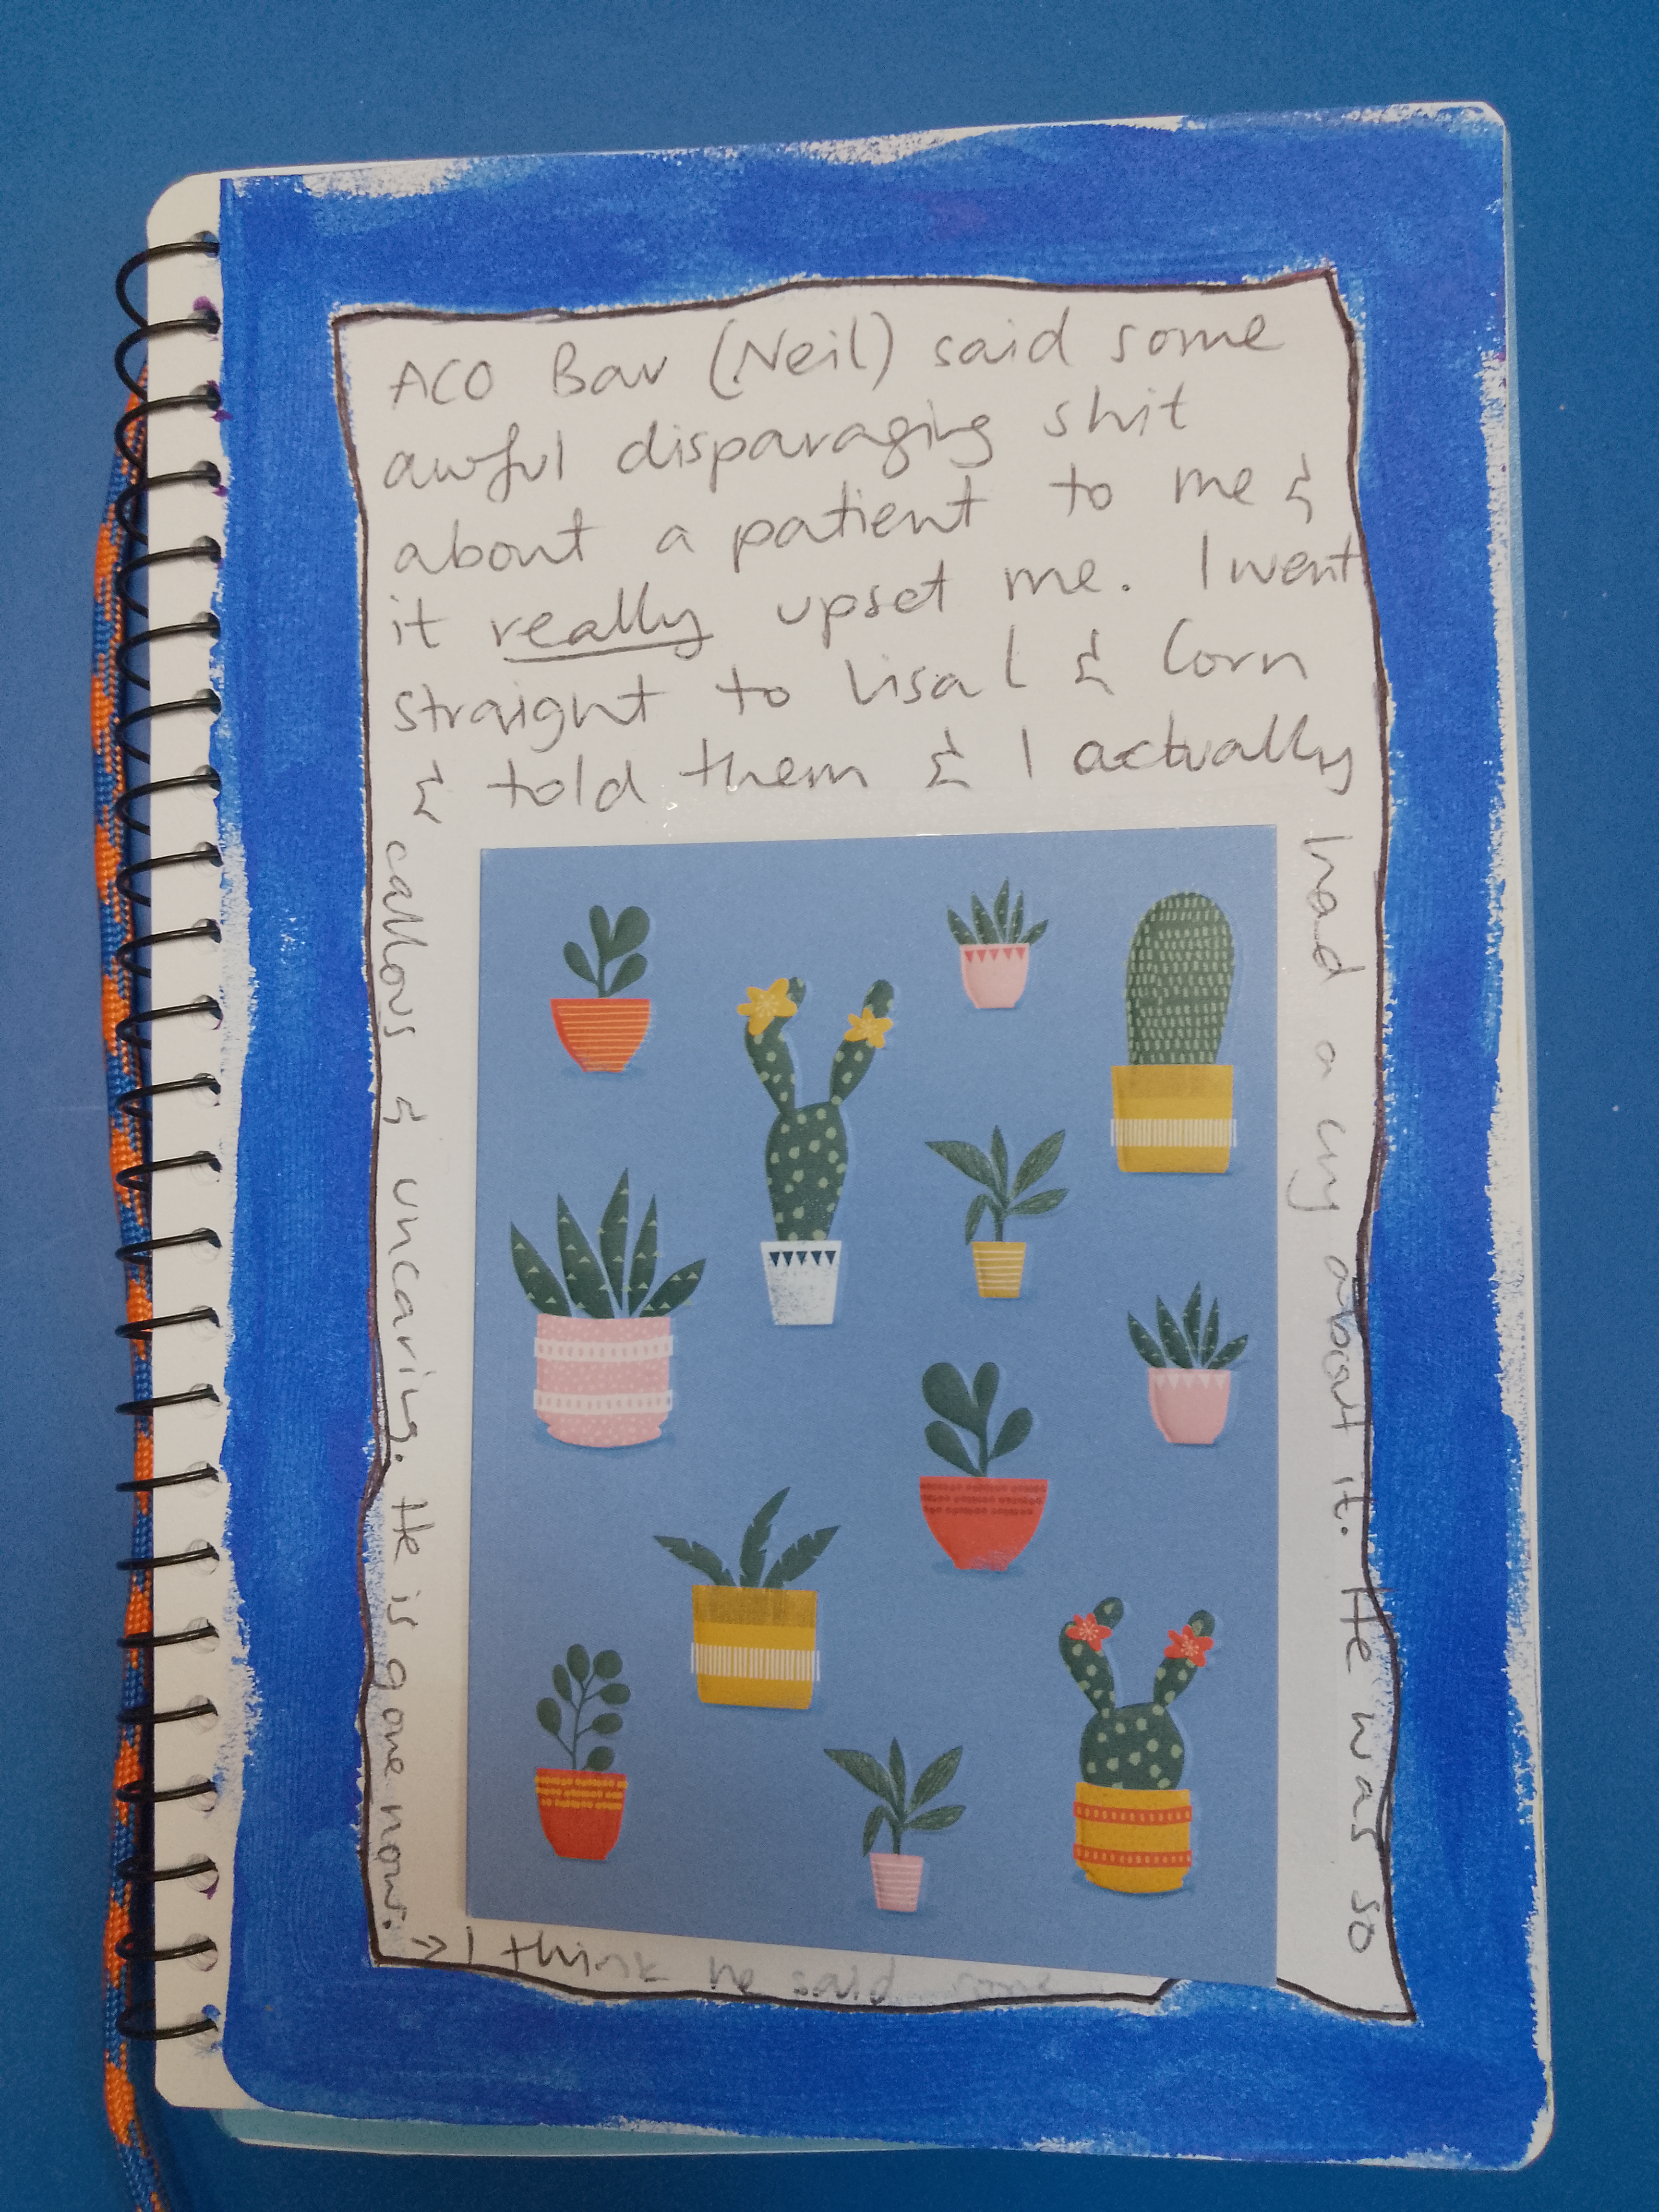 ACO Bav (Neil) said some
awful disparaging shit
about a patient to me &
it really upset me. I went
straight to Lisa L & Corn
& told them & I actually
had a cry about it. He was so
callous & uncaring. He is gone now.
→ I think he said some